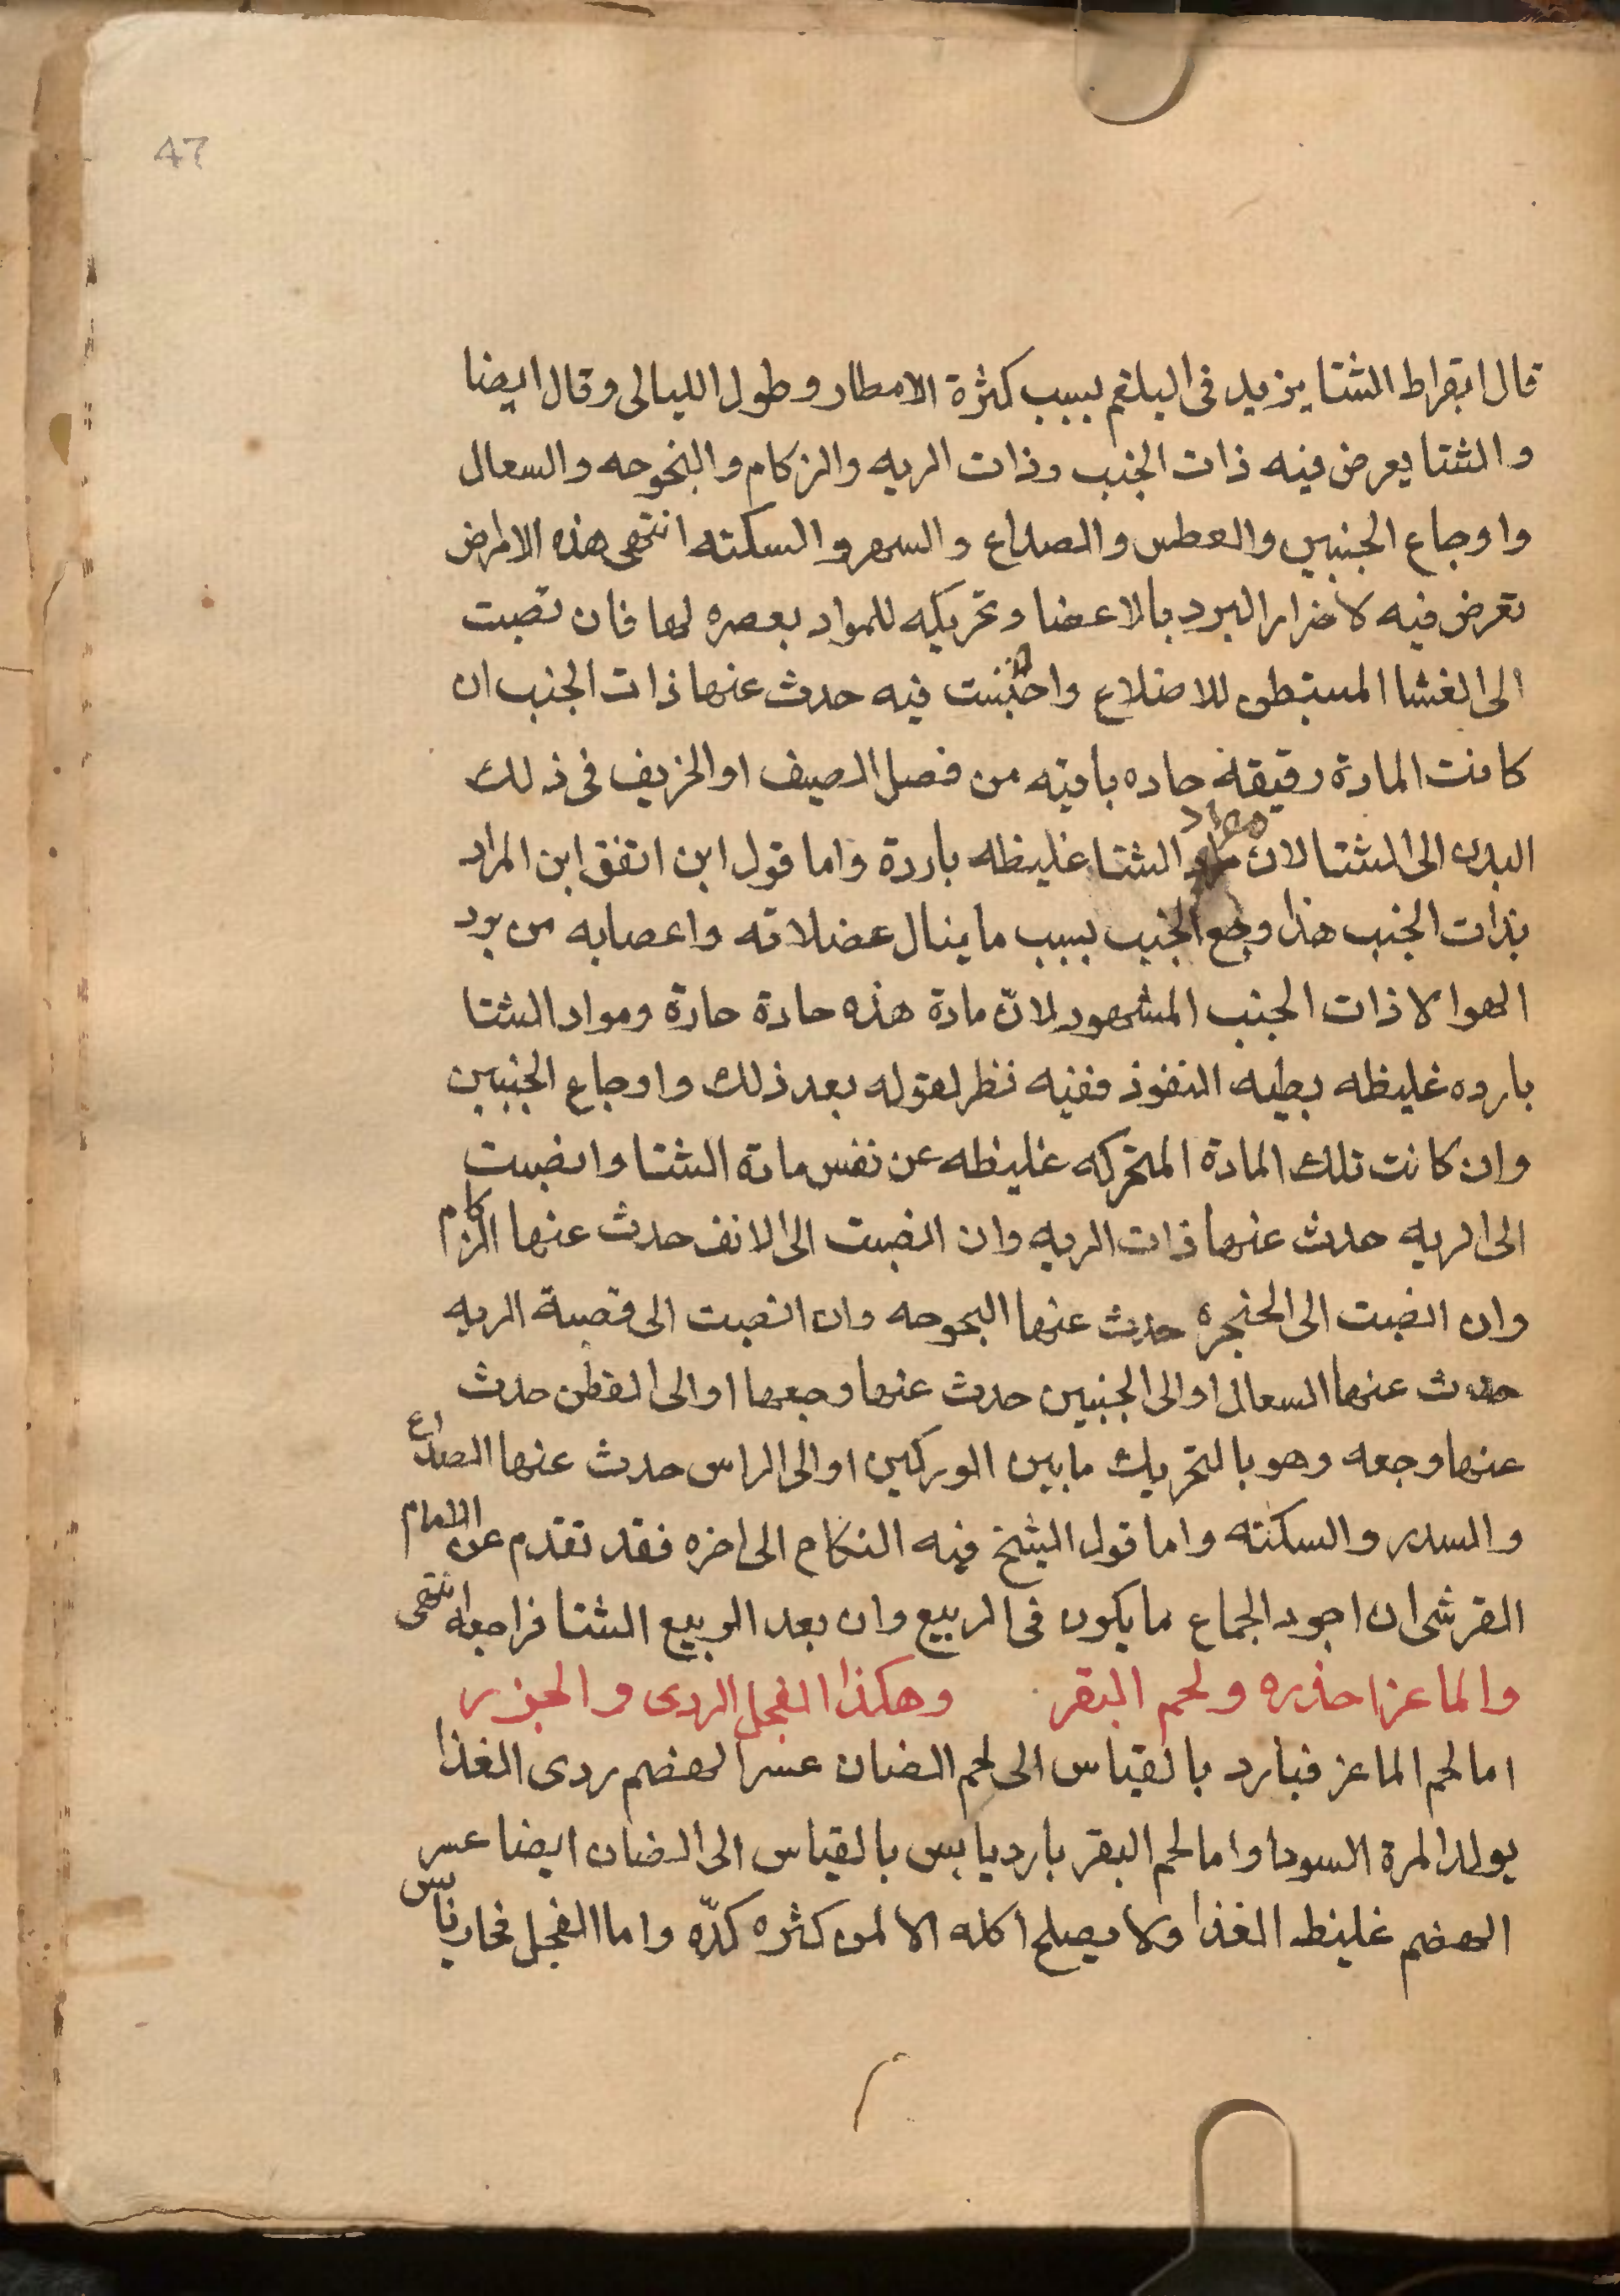 47
قال ابقراط الشتا يزيد فى البلغم بسبب كثرة الامطار وطول الليالى وقال ايضا
والشتا يعرض فيه ذات الجنب وذات الريه والزكام والبحوحه والسعال
واوجاع الجنبين والعطس والصداع والسهر والسكته انتهى هذه الامراض
تعرض فيه لاضرار البرد بالاعضا وتحريكه للمواد بعصره لها فان نصبت
الى الغشا المستبطن للاضلاع واحتبست فيه حدث عنها ذات الجنب ان
كانت المادة رقيقة حاده باقيه من فصل الصيف او الخريف فى ذلك
البدن الى الشتا لان مواد الشتا غليظه باردة واما قول ابن اتفق ابن المراد
بذات الجنب هذا وجع الجنب بسبب ما ينال عضلاته واعصابه من برد
الهوا لا ذات الجنب المشهور لانّ مادة هذه حادة حارة ومواد الشتا
بارده غليظه بطيه النفوذ ففيه نظر لقوله بعد ذلك واوجاع الجنبين
وان كانت تلك المادة المتحركه غليظه عن نفس مادة الشتا وانصبت
الى الريه حدث عنها ذات الريه وان انصبت الى الانف حدث عنها الزكام
وان انصبت الى الحنجره حدث عنها البحوحه وان انصبت الى قصبة الريه
حدث عنها السعال او الى الجنبين حدث عنها وجعها او الى القطن حدث
عنها وجعه وهو بالتحريك ما بين الوركين او الى الراس حدث عنها الصداع
والسدر والسكته واما قول الشيخ فيه النكاح الى اخره فقد تقدم عن الامام
القرشى ان اجود الجماع ما يكون فى الربيع وان بعد الربيع الشتا فراجعه انتهى
والماعز احذره ولحم البقر وهكذا الفجل الردى والجزر
اما لحم الماعز فبارد بالقياس الى لحم الضان عسر الهضم ردى الغذا
يولد المرة السودا واما لحم البقر بارد يابس بالقياس الى الضان ايضا عسر
الهضم غليظ الغذا ولا يصلح اكله الا لمن كثره كدّه واما الفجل فحار يابس